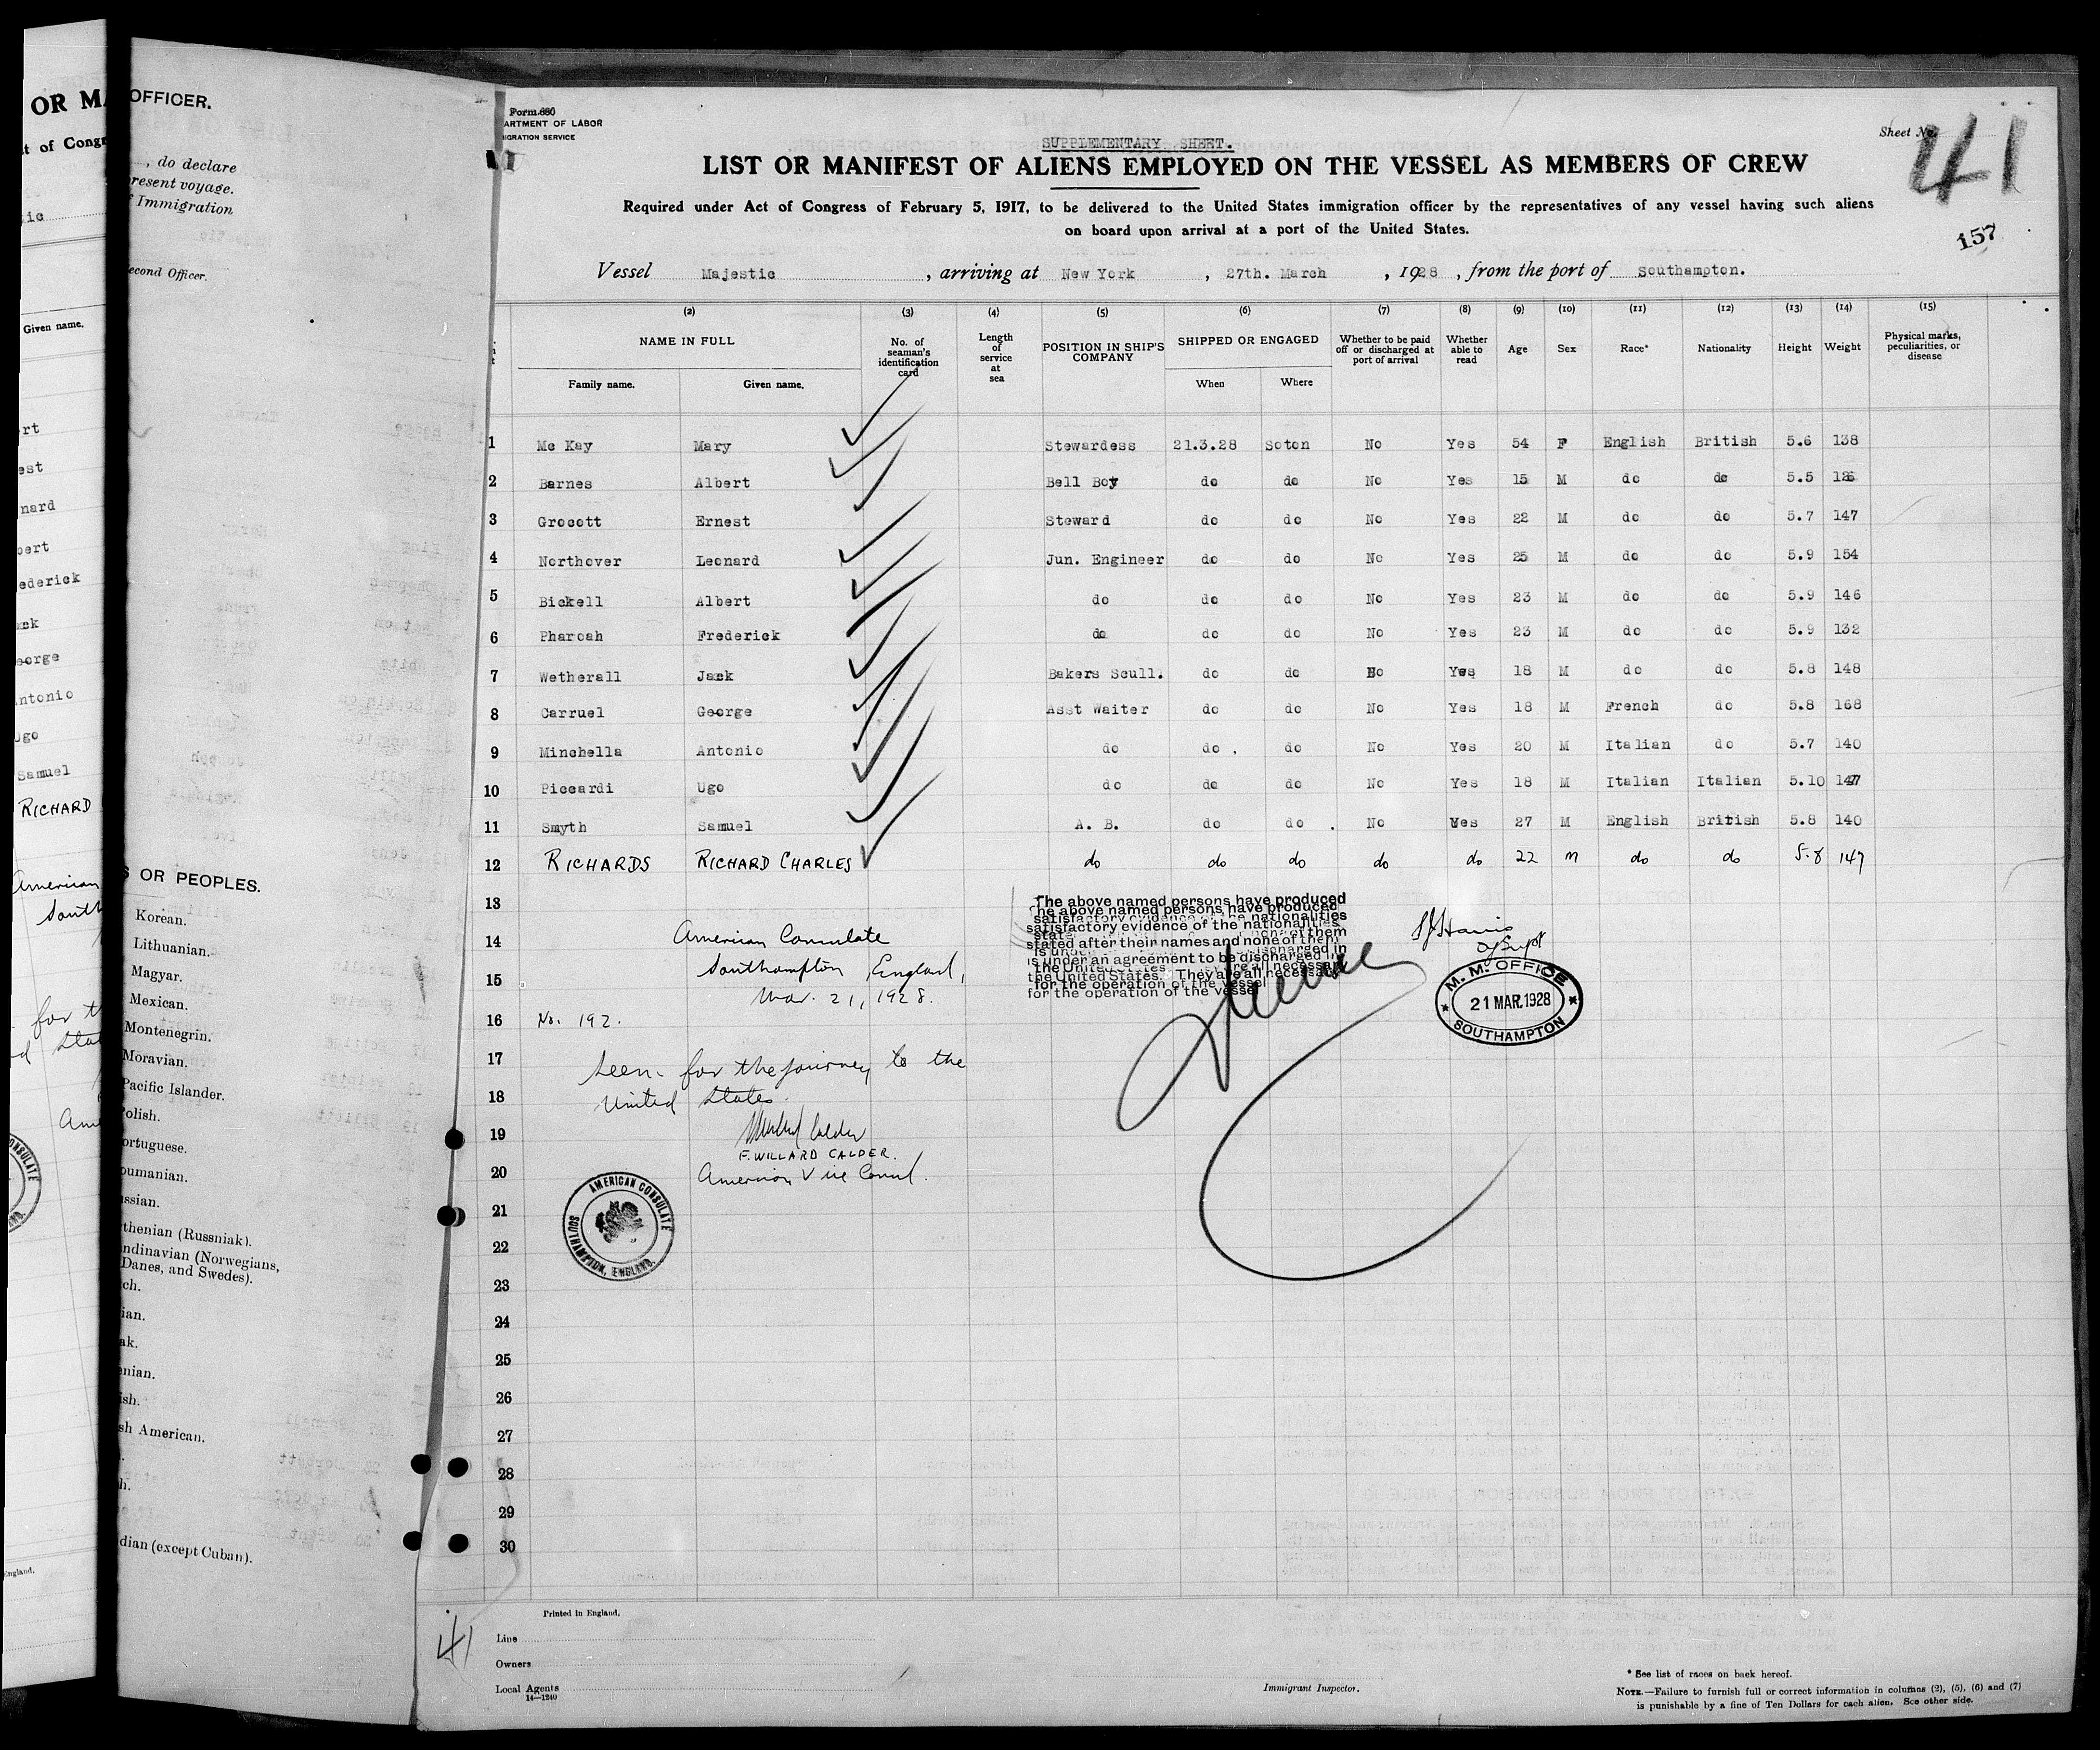 OR MA
t of Congr
ic
Given name.
rt
est
nard
bert
ederick
ack
eorge
Antonio
Ugo
Samuel
RICHARD
American
South
for th
d Stat
Ame
England.
OFFICER.
, do declare
present voyage.
f Immigration
econd Officer.
S OR PEOPLES.
Korean.
Lithuanian.
Magyar.
Mexican.
Montenegrin.
Moravian.
Pacific Islander.
Polish.
ortuguese.
oumanian.
ussian.
thenian (Russniak).
ndinavian (Norwegians,
Danes, and Swedes).
ch.
ian.
ak.
enian.
ish.
sh American.
h.
dian (except Cuban).
Form 680
ARTMENT OF LABOR
IGRATION SERVICE
SUPPLEMENTARY SHEET.
Sheet No.
41
LIST OR MANIFEST OF ALIENS EMPLOYED ON THE VESSEL AS MEMBERS OF CREW
Required under Act of Congress of February 5, 1917, to be delivered to the United States immigration officer by the representatives of any vessel having such aliens
on board upon arrival at a port of the United States.
157
Vessel Majestic , arriving at New York , 27th. March , 1928 , from the port of Southampton.
(2) (3) (4) (5) (6) (7) (8) (9) (10) (11) (12) (13) (14) (15)
NAME IN FULL No. of seaman's identification card Length of service at sea POSITION IN SHIP'S COMPANY SHIPPED OR ENGAGED Whether to be paid off or discharged at port of arrival Whether able to read Age Sex Race* Nationality Height Weight Physical marks, peculiarities, or disease
Family name. Given name. When Where
1 Mc Kay Mary Stewardess 21.3.28 Soton No Yes 54 F English British 5.6 138
2 Barnes Albert Bell Boy do do No Yes 15 M do do 5.5
3 Grocott Ernest Steward do do No Yes 22 M do do 5.7 147
4 Northover Leonard Jun. Engineer do do No Yes 25 M do do 5.9 154
5 Bickell Albert do do do No Yes 23 M do do 5.9 146
6 Pharoah Frederick do do do No Yes 23 M do do 5.9 132
7 Wetherall Jack Bakers Scull. do do No Yes 18 M do do 5.8 148
8 Carruel George Asst Waiter do do No Yes 18 M French do 5.8 168
9 Minchella Antonio do do . do No Yes 20 M Italian do 5.7 140
10 Piccardi Ugo do do do No Yes 18 M Italian Italian 5.10 147
11 Smyth Samuel A. B. do do . No Yes 27 M English British 5.8 140
12 RICHARDS RICHARD CHARLES do do do do do 22 M do do 5.8 147
13
14
15
16
17
18
19
20
21
22
23
24
25
26
27
28
29
30
American Consulate
Southampton, England,
Mar. 21, 1928.
No. 192.
Seen for the journey to the
United States.
Willard Calder
F. WILLARD CALDER.
American Vice Consul.
AMERICAN CONSULATE
SOUTHAMPTON, ENGLAND.
The above named persons have produced
satisfactory evidence of the nationalities
stated after their names and none of them
is under an agreement to be discharged in
the United States. They are all necessary
for the operation of the vessel
M. M. OFFICE
21 MAR. 1928
SOUTHAMPTON
41
Printed in England.
Line
Owners
Local Agents
14—1240
Immigrant Inspector.
* See list of races on back hereof.
NOTE.—Failure to furnish full or correct information in columns (2), (5), (6) and (7)
is punishable by a fine of Ten Dollars for each alien. See other side.